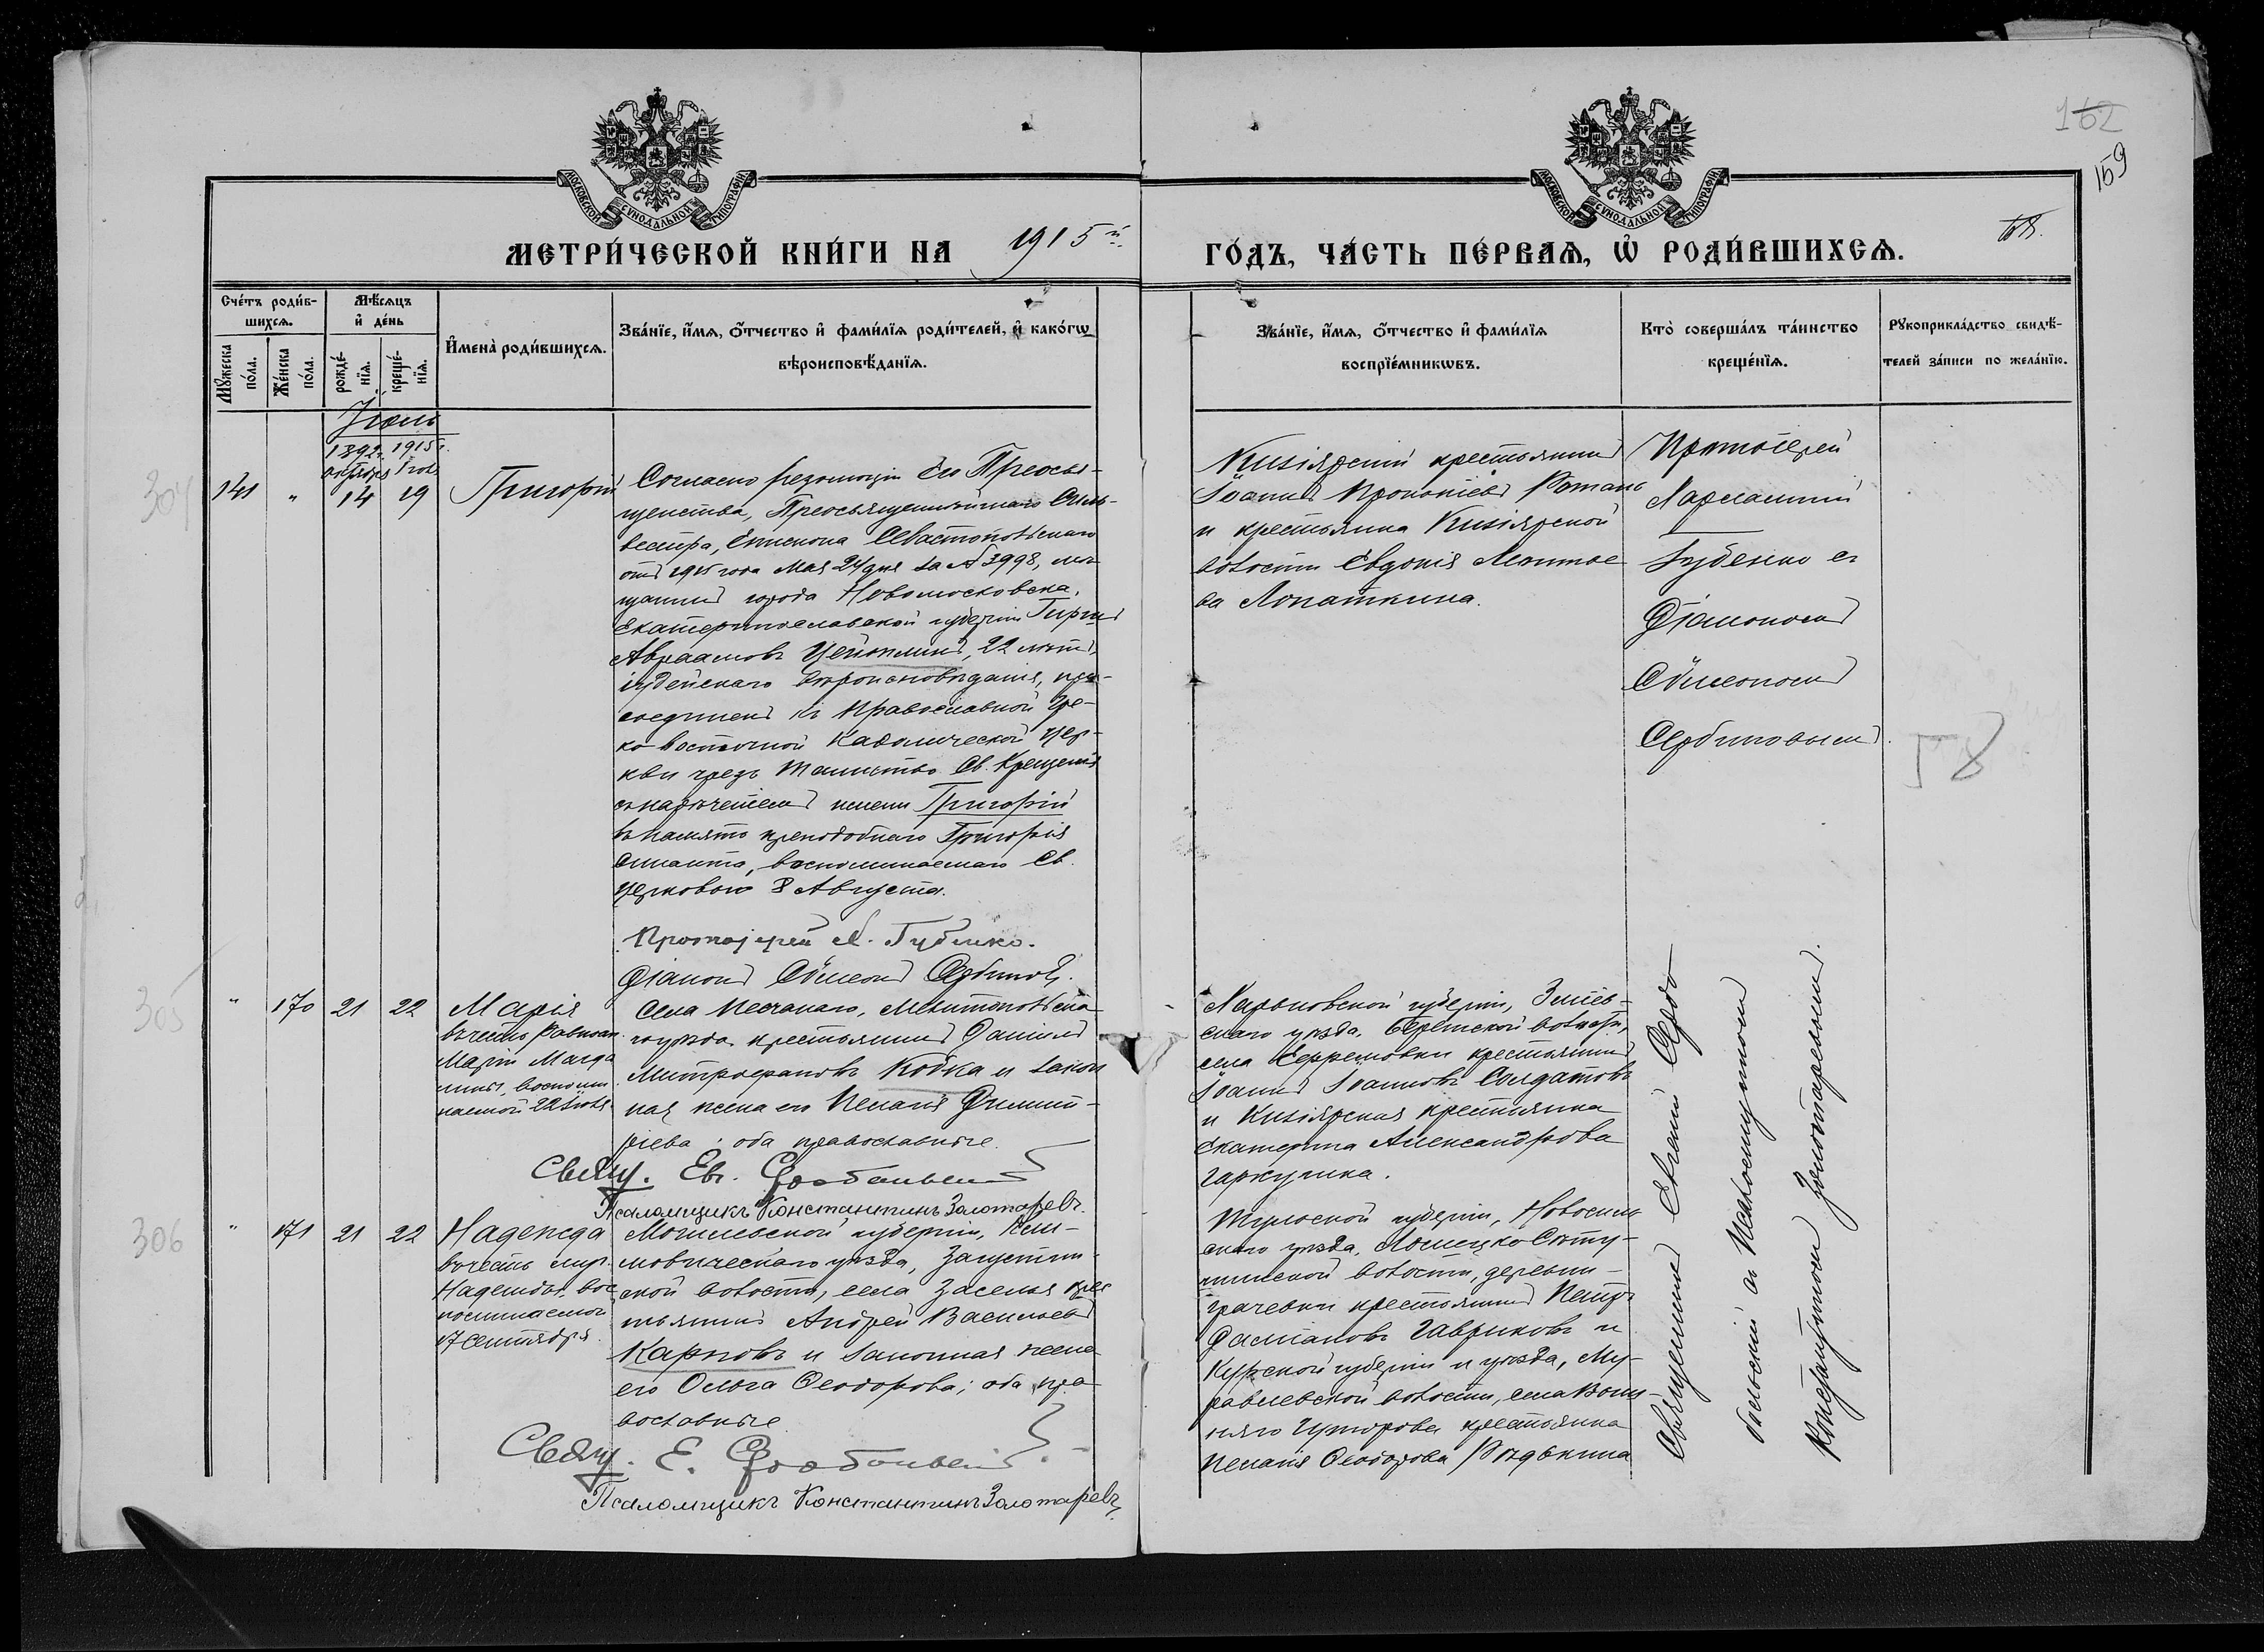 162
159
МОСКОВСКОЙ СѴНОДАЛЬНОЙ ТИПОГРАФІИ
МОСКОВСКОЙ СѴНОДАЛЬНОЙ ТИПОГРАФІИ
МЕТРИ́ЧЕСКОЙ КНИ́ГИ НА 1915й
ГО́ДЪ, ЧА́СТЬ ПЕ́РВАѦ, Ѡ҆ РОДИ́ВШИХСѦ.
Сче́тъ роди́в-
шихсѧ.
Мꙋ́жеска по́ла.
Же́нска по́ла.
Мѣ́сѧцъ
и҆ де́нь
рожде́-
нїѧ.
креще́-
нїѧ.
И҆мена̀ роди́вшихсѧ.
Зва́нїе, и҆́мѧ, ѻ҆́тчество и҆ фами́лїѧ роди́телей, и҆ како́гѡ
вѣроисповѣ́данїѧ.
Зва́нїе, и҆́мѧ, ѻ҆́тчество и҆ фами́лїѧ
воспрїе́мникѡвъ.
Кто̀ соверша́лъ та́инство
креще́нїѧ.
Рꙋкоприкла́дство свидѣ́-
телей за́писи по жела́нїю.
Іюль
1892г. 1915г.
октября Іюль
304
141 " 14 19 Григорій
Согласно резолюціи Его Преосвя-
щенства, Преосвященнѣйшаго Силь-
вестра, Епископа Севастопольскаго
отъ 1915 года Мая 24 дня за № 3998, мѣ-
щанинъ города Новомосковска,
Екатеринославской губерніи Гирш
Авраамовъ Цейтлинъ, 22 лѣтъ,
іудейскаго вѣроисповѣданія, при-
соединенъ къ Православной Гре-
ко-Восточной Каѳолической Цер-
кви чрезъ Таинство Св. Крещенія
съ нареченіемъ имени Григорій
въ память преподобнаго Григорія
Синаита, воспоминаемаго Св.
Церковью 8 Августа.
Протоіерей Х. Губенко.
Діаконъ Сѵмеонъ Сербиновъ.
Кизіярскій крестьянинъ
Іоаннъ Прокопіевъ
и крестьянка Кизіярской
волости Евдокія
ва Лопаткина.
Протоіерей
Харлампій
Губенко съ
Діакономъ
Сѵмеономъ
Сербиновымъ.
305
" 170 21 22 Марія
въ честь Равноап.
Маріи Магда
лины, воспоми
наемой 22 Іюля.
Села Песчанаго, Мелитопольска-
го уѣзда крестьянинъ Даніилъ
Митрофановъ Кобка и закон
ная жена его Пелагія Димит-
ріева; оба православные.
Свящ. Ев.
Псаломщикъ Константинъ Золотаревъ.
Харьковской губерніи, Зміев-
скаго уѣзда, Берекской волости,
села Ефремовки крестьянинъ
Іоаннъ Іоанновъ Солдатовъ
и Кизіярская крестьянка
Екатерина Александрова
Гаркушина.
306
" 171 21 22 Надежда
въ честь муч.
Надежды, вос
поминаемой
17 Сентября.
Могилевской губерніи, Кли-
мовическаго уѣзда,
ской волости, села Заселья крес
тьянинъ Андрей Васильевъ
Карповъ и законная жена
его Ольга Ѳеодорова; оба пра
вославные
Свящ. Е.
Псаломщикъ Константинъ Золотаревъ.
Тульской губерніи, Новосиль
скаго уѣзда,
волости, деревни
Грачевки крестьянинъ Петръ
Даміановъ Гавриковъ и
Курской губерніи и уѣзда, Му-
равлевской волости, села
крестьянка
Пелагія Ѳеодорова Рѣдькина
Священникъ Евгеній Сербо
больскій съ Псаломщикомъ
Константиномъ Золотаревымъ.